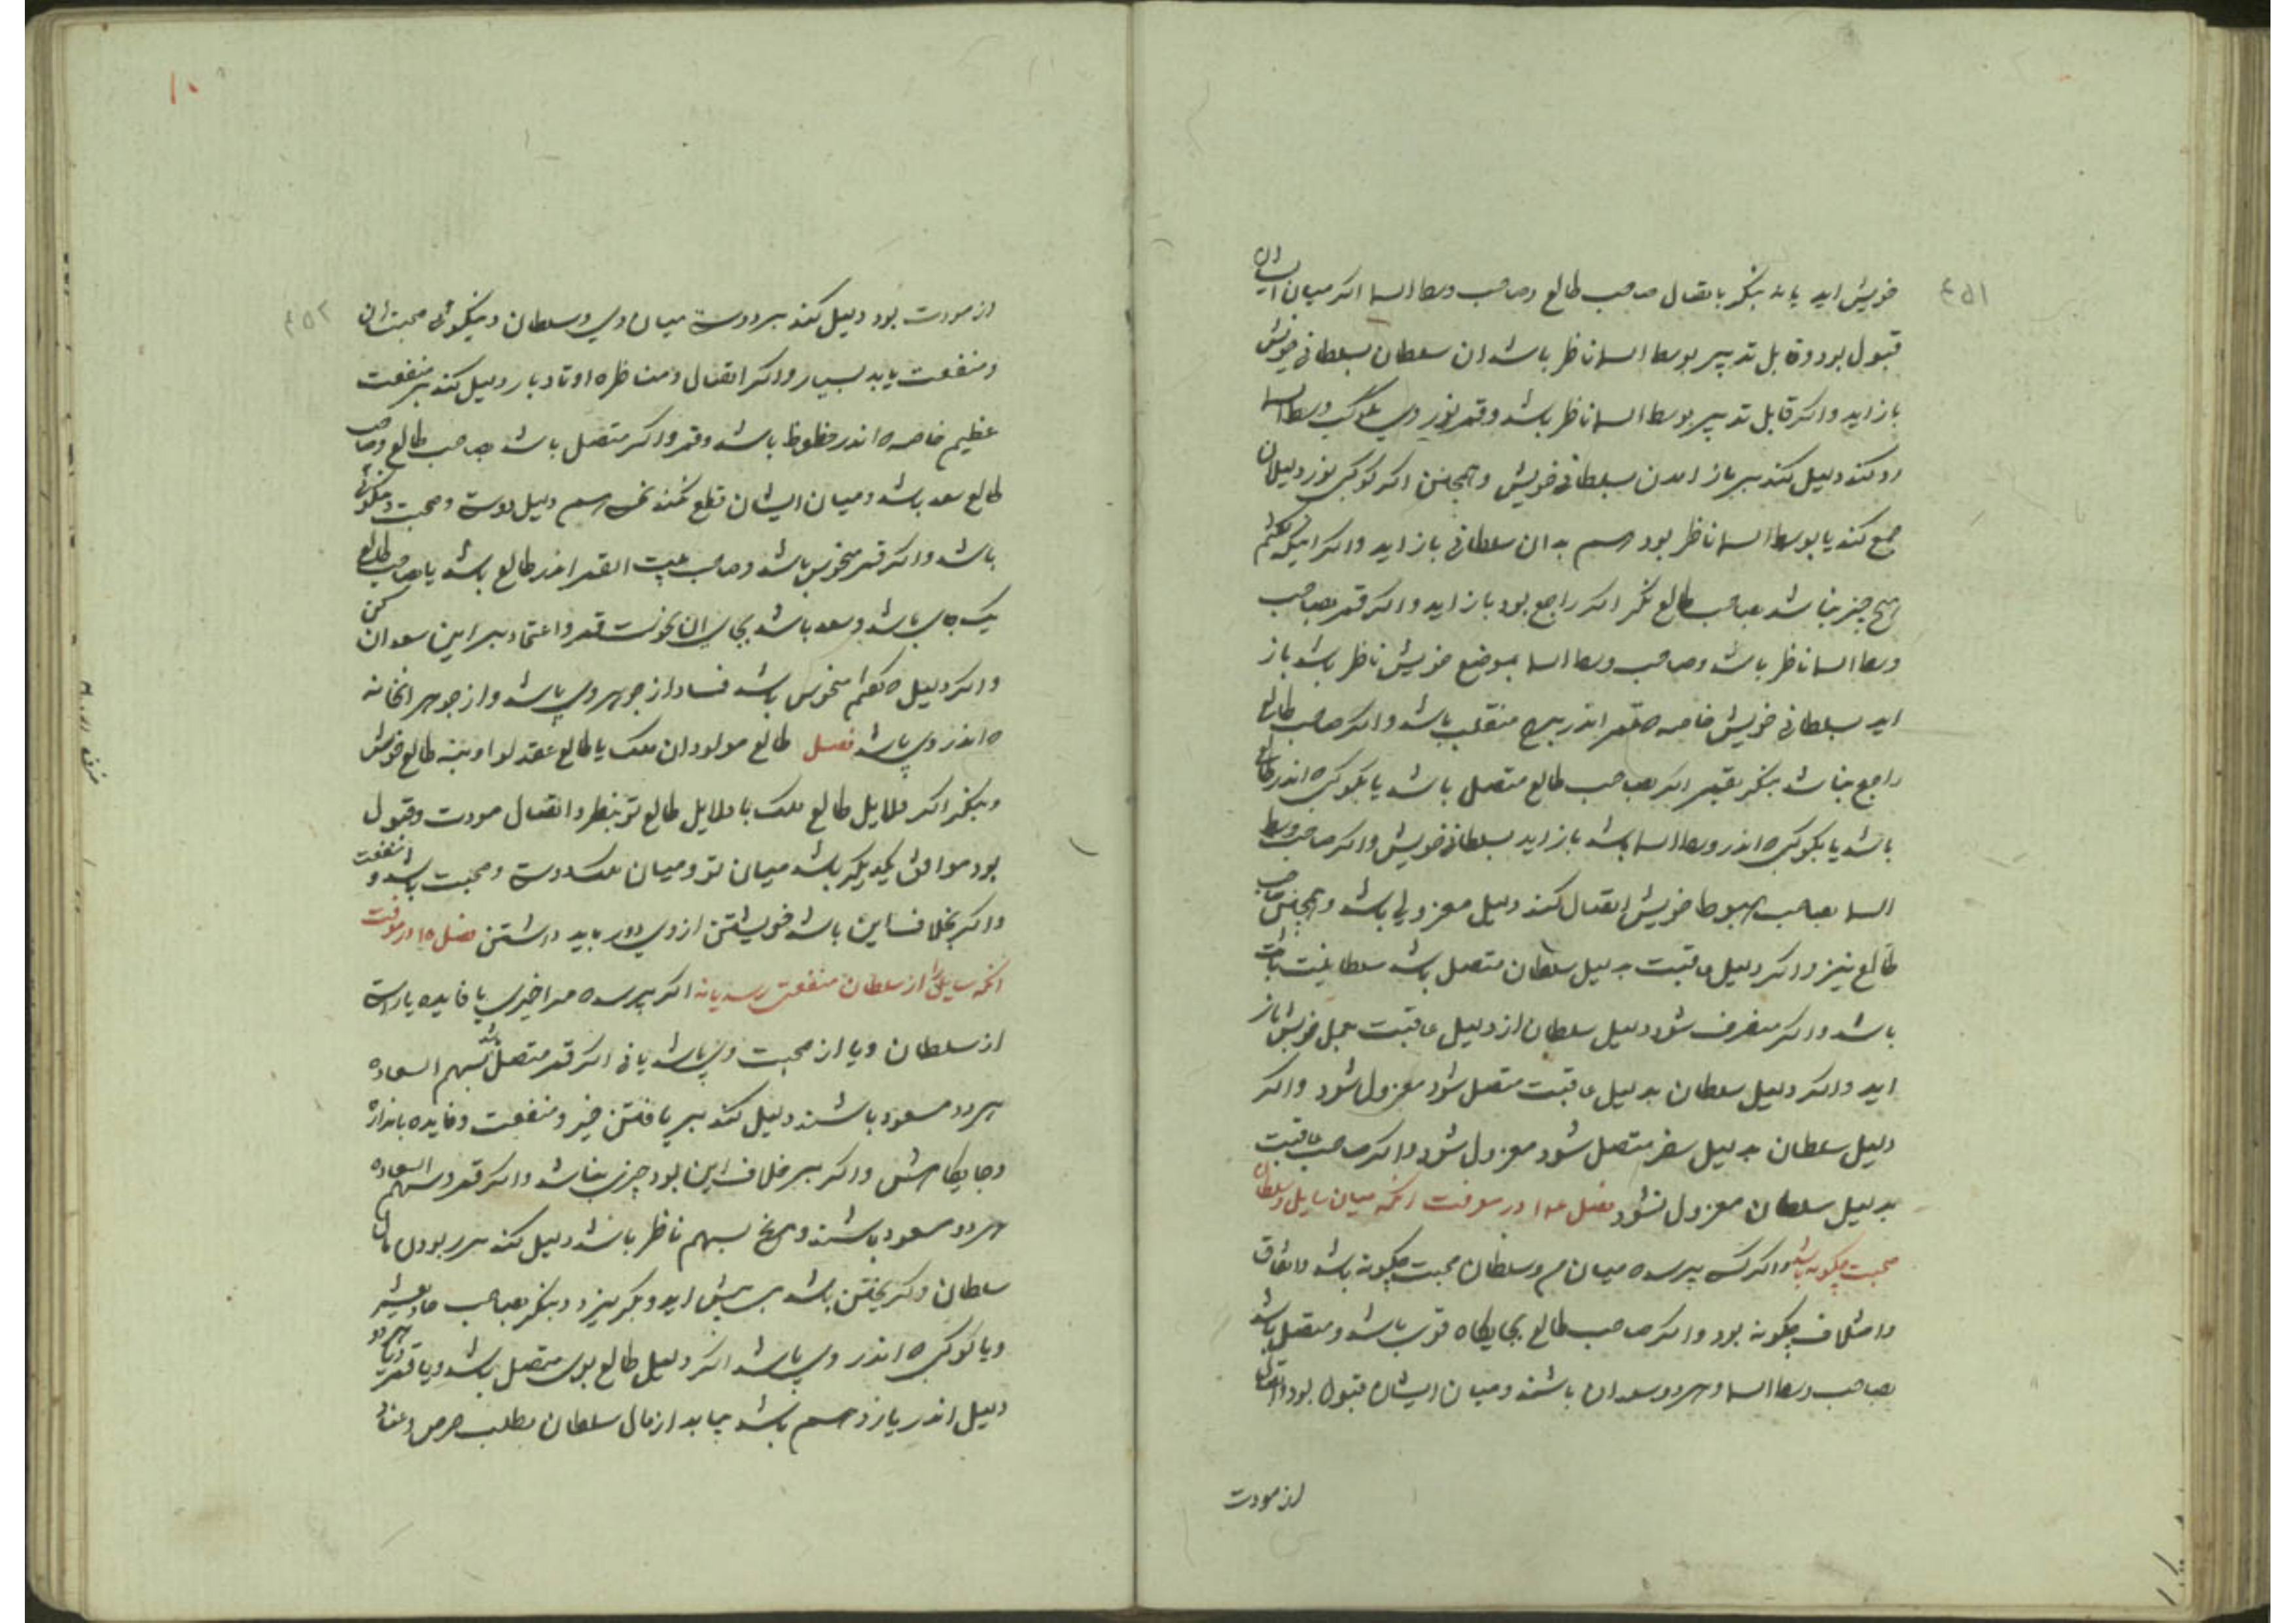 ۴۵۱
خویش اید یا نه بنکر باتصال صاحب طالع و صاحب وسط السما اکر میان ایشان
قبول بود و قابل تدبیر بوسط السما ناظر باشد ان سلطان بسلطانی خویش
باز اید و اکر قابل تدبیر بوسط السما ناظر باشد و قمر نور وی بکوکب وسط السما
رد کند دلیل کند بر باز امدن بسلطانی خویش و همچنین اکر کوکبی نور دلیلان
جمع کند یا بوسط السما ناظر بود هم بدان سلطانی باز اید و اکر اینکه کفتم
هیچ چیز نباشد بصاحب طالع نکر اکر راجع بود باز اید و اکر قمر بصاحب
وسط السما ناظر باشد و صاحب وسط السما بموضع خویش ناظر باشد باز
اید بسلطانی خویش خاصه که قمر اندر برج منقلب باشد و اکر صاحب طالع
راجع نباشد بنکر بقمر اکر بصاحب طالع متصل باشد یا بکوکبی که اندر طالع
باشد یا بکوکبی که اندر وسط السما باشد باز اید بسلطانی خویش و اکر صاحب وسط
السما بصاحب هبوط خویش اتصال کند دلیل معزولی باشد و همچنین صاحب
طالع نیز و اکر دلیل عاقبت بدلیل سلطان متصل باشد سلطا
باشد و اکر منصرف شود دلیل سلطان از دلیل عاقبت بعمل خویش باز
اید و اکر دلیل سلطان بدلیل عاقبت متصل شود معزول شود و اکر
دلیل سلطان بدلیل سفر متصل شود معزول شود و اکر صاحب عاقبت
بدلیل سلطان معزول نشود فصل در معرفت انکه میان سایل و سلطان
صحبت چکونه باشد و اکر کسی پرسد که میان من و سلطان صحبت چکونه باشد و اتفاق
و اختلاف چکونه بود و اکر صاحب طالع بجایکاه قوی باشد و متصل باشد
بصاحب وسط السما و هر دو سعد باشند و میان ایشان قبول بود و اتصال
از مودت
۴۵۲
از مودت بود دلیل کند بر دوستی میان وی و سلطان و نیکوئی صحبت ان
و منفعت یابد بسیار و اکر اتصال و مناظره اوتاد باز دلیل کند بر منفعت
عظیم خاصه که اندر حظوظ باشد و قمر و اکر متصل باشد بصاحب طالع و صاحب
طالع سعد باشد و میان ایشان قطع نکند نحسی هم دلیل دوستی و صحبت و نیکوئی
باشد و اکر قمر منحوس باشد و صاحب بیت القمر اندر طالع باشد یا صاحب طالع
یک جای باشد و سعد باشد بجای ان نحوست قمر و اعتماد بر این سعد ان کن
و اکر دلیل که کفتم منحوس باشد فساد از جوهر وی باشد و از جوهر انخانه
که اندر وی باشد فصل طالع مولود ان ملک یا طالع عقد لوا او بنه طالع خویش
و بنکر اکر دلایل طالع ملک با دلایل طالع تو بنظر و اتصال مودت و قبول
بود موافق یکدیکر باشد میان تو و میان ملک دوستی و صحبت باشد و منفعت
و اکر بخلاف این باشد خویشتن از وی دور باید داشتن فصل ۱۵ در معرفت
انکه سایل را از سلطان منفعت رسد یا نه اکر پرسد که مرا خیری یا فایده یا راستی
از سلطان و یا از صحبت وی باشد یا نی اکر قمر متصل باشد بسهم السعاده
هر دو مسعود باشند دلیل کند بر یافتن خیر و منفعت و فایده باندازه
و جایکاهش و اکر بر خلاف این بود چیزی نباشد و اکر قمر و سهم السعاده
هر دو مسعود باشند و مریخ بسهم ناظر باشد دلیل کند بر ربودن مال
سلطان و کریختن باشد پیش اید و بکریزد و بنکر بصاحب حادیعشر
و یا کوکبی که اندر وی باشد اکر دلیل طالع بوی متصل باشد و یا قمر یا هر دو
دلیل اندر یازدهم باشد بیابد از مال سلطان بطلب حرص و عنا